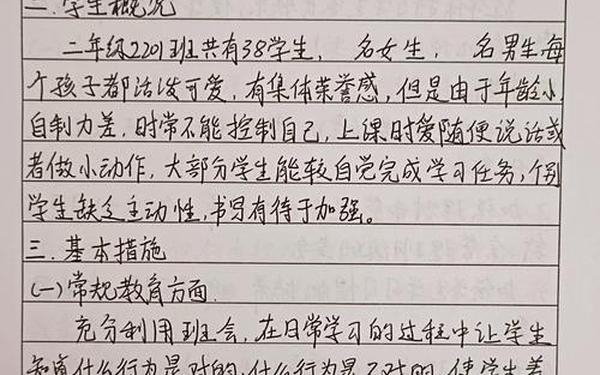 二.学生概况
二年级2201班共有38学生， 名女生， 名男生每
个孩子都活泼可爱，有集体荣誉感，但是由于年龄小
自制力差，时常不能控制自己，上课时爱随便说话或
者做小动作，大部分学生能较自觉完成学习任务，个别
学生缺乏主动性，书写有待于加强。
三.基本措施
(一)常规教育方面.
充分利用班会，在日常学习的过程中让学生
知道什么行为是对的，什么行为是不对的，使学生养